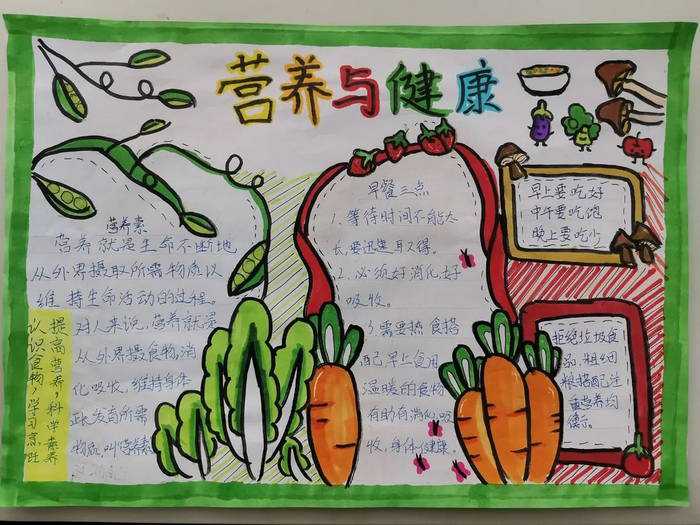 营养与健康
营养素
营养就是生命不断地
从外界摄取所需物质以
维持生命活动的过程。
对人来说,营养就是
从外界摄食物,消
化吸收,维持身体
发育所需
物质,叫营养素
提高营养,科学素养
认识食物,学习烹饪
早餐三点
1、等待时间不能太
长,要迅速取得。
2、必须好消化,好
吸收。
3、需要热食搭
配,早上食用
温暖的食物
有助自消化,吸
收,身体健康。
早上要吃好
中午要吃饱
晚上要吃少
拒绝垃圾食
品,粗细
粮搭配,注
重营养均
衡。